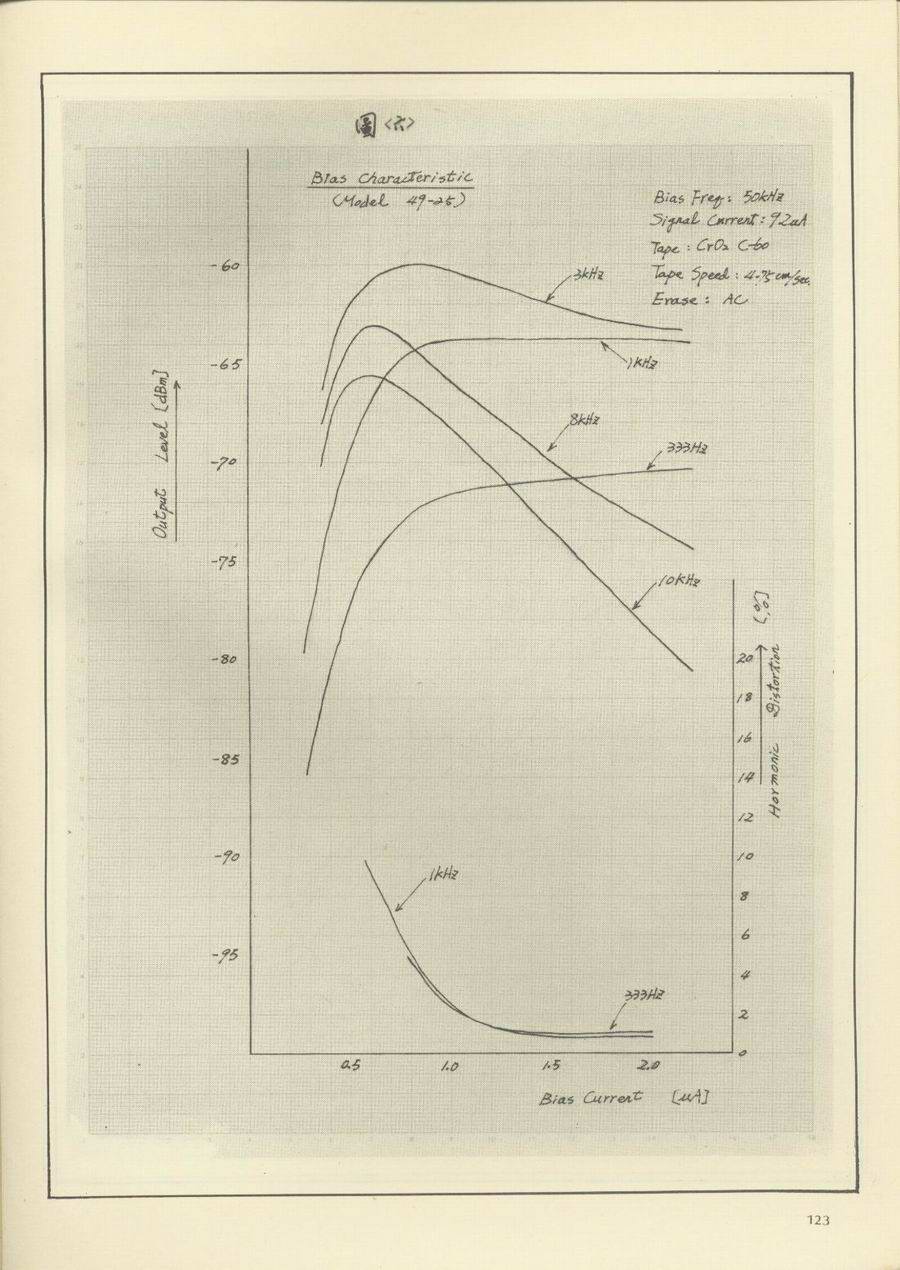 圖〈六〉
Bias Characteristic
(Model 49-25)
Bias Freq: 50kHz
Signal Current: 92uA
Tape: CrO2 C-60
Tape Speed: 4.75 cm/sec.
Erase: AC
Output Level [dBm]
-60
-65
-70
-75
-80
-85
-90
-95
3kHz
1kHz
8kHz
333Hz
10kHz
1kHz
333Hz
Harmonic Distortion [%]
20
18
16
14
12
10
8
6
4
2
0
0.5 1.0 1.5 2.0
Bias Current [μA]
123